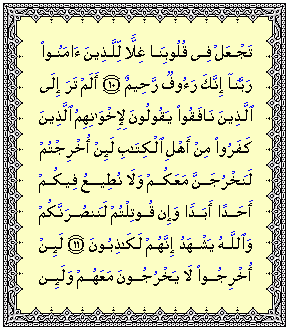 تَجْعَلْ فِى قُلُوبِنَا غِلًّا لِّلَّذِينَ ءَامَنُوا۟
رَبَّنَآ إِنَّكَ رَءُوفٌ رَّحِيمٌ ١٠ أَلَمْ تَرَ إِلَى
ٱلَّذِينَ نَافَقُوا۟ يَقُولُونَ لِإِخْوَٰنِهِمُ ٱلَّذِينَ
كَفَرُوا۟ مِنْ أَهْلِ ٱلْكِتَٰبِ لَئِنْ أُخْرِجْتُمْ
لَنَخْرُجَنَّ مَعَكُمْ وَلَا نُطِيعُ فِيكُمْ
أَحَدًا أَبَدًا وَإِن قُوتِلْتُمْ لَنَنصُرَنَّكُمْ
وَٱللَّهُ يَشْهَدُ إِنَّهُمْ لَكَٰذِبُونَ ١١ لَئِنْ
أُخْرِجُوا۟ لَا يَخْرُجُونَ مَعَهُمْ وَلَئِن